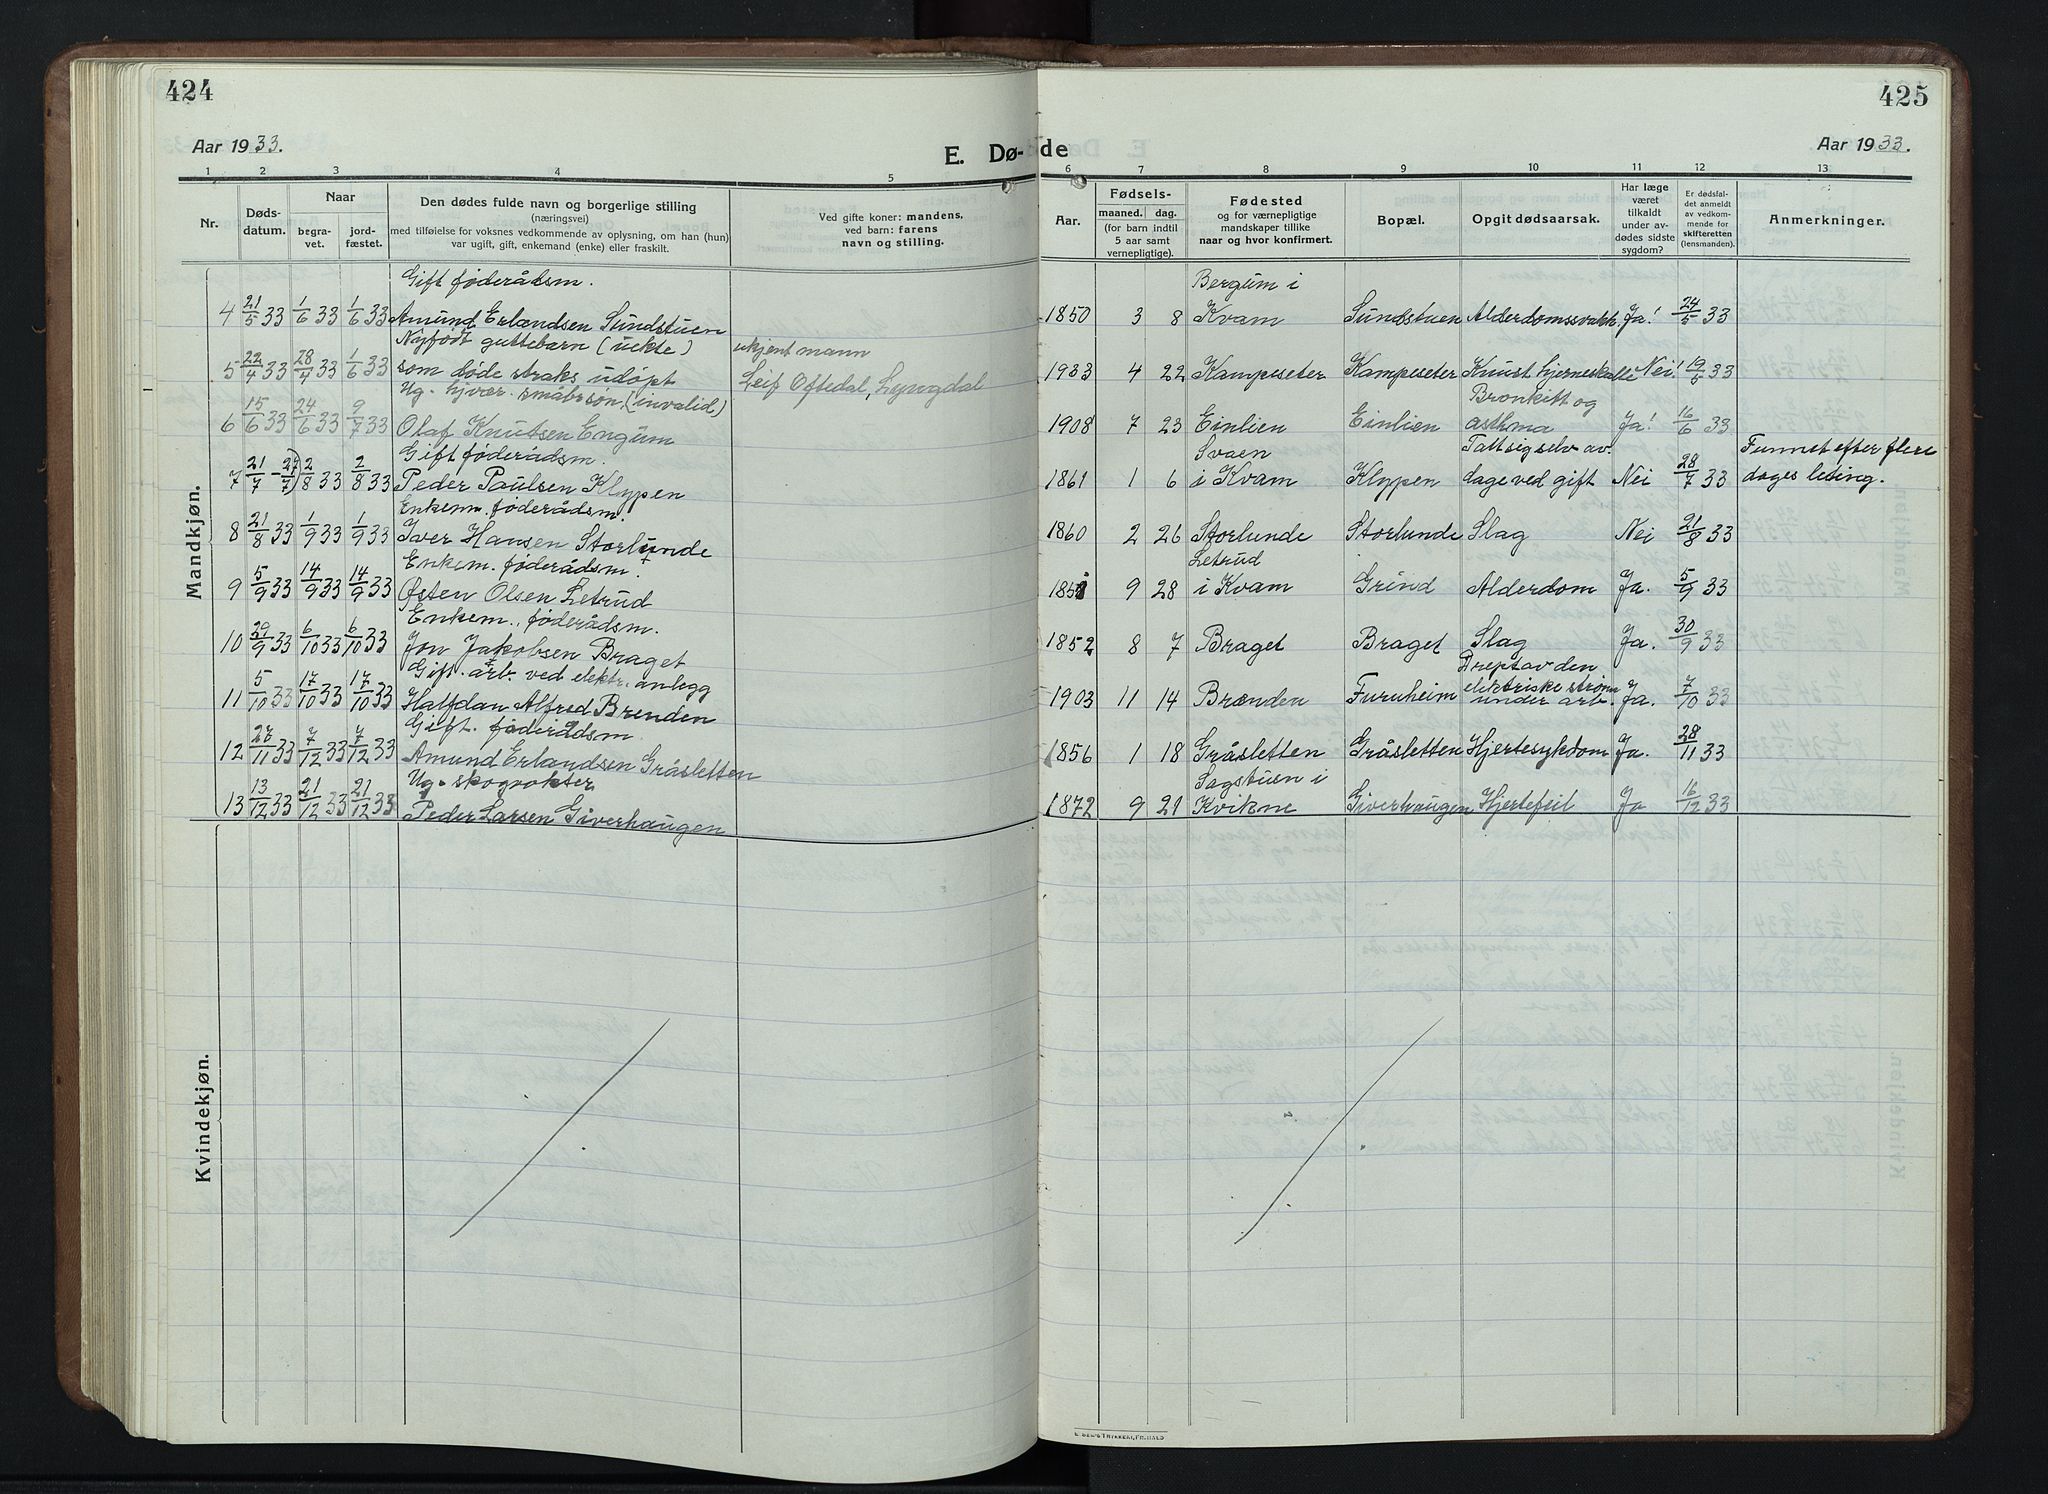 424
Aar 1933.
E. Dø-
1 2 3 4 5
Nr.
Døds-
datum.
Naar
begra-
vet.
jord-
fæstet.
Den dødes fulde navn og borgerlige stilling
(næringsvei)
med tilføielse for voksnes vedkommende av oplysning, om han (hun)
var ugift, gift, enkemand (enke) eller fraskilt.
Ved gifte koner: mandens,
ved barn: farens
navn og stilling.
Mandkjøn.
Gift føderådsm.
4 21/5 33 1/6 33 1/6 33 Amund Erlandsen Sundstuen
Nyfødt guttebarn (uekte) ukjent mann
5 22/4 33 28/4 33 1/6 33 som døde straks udøpt Leif Oftedal, Lyngdal
Ug. hjvær. småbr.søn (invalid)
6 15/6 33 24/6 33 9/7 33 Olaf Knutsen Engum
Gift føderådsm.
7 21/7 - 27/7) 2/8 33 2/8 33 Peder Paulsen Klypen
Enkem. føderådsm.
8 21/8 33 1/9 33 1/9 33 Iver Hansen Storlunde
Enkem. føderådsm.
9 5/9 33 14/9 33 14/9 33 Østen Olsen Letrud
Enkem., føderådsm.
10 29/9 33 6/10 33 6/10 33 Jon Jakobsen Braget
Gift. arb. ved elektr. anlegg
11 5/10 33 17/10 33 17/10 33 Halfdan Alfred Brenden
Gift. føderådsm
12 27/11 33 7/12 33 7/12 33 Amund Erlandsen Gråsletten
Ug. skogvokter
13 13/12 33 21/12 33 21/12 33 Peder Larsen Giverhaugen
Kvindekjøn.
425
de
Aar 1933.
6 7 8 9 10 11 12 13
Aar.
Fødsels-
maaned. dag.
(for barn indtil
5 aar samt
vernepligtige).
Fødested
og for værnepligtige
mandskaper tillike
naar og hvor konfirmert.
Bopæl.
Opgit dødsaarsak.
Har læge
været
tilkaldt
under av-
dødes sidste
sygdom?
Er dødsfal-
det anmeldt
av vedkom-
mende for
skifteretten
(lensmanden).
Anmerkninger.
Bergum i
1850 3 8 Kvam Sundstuen Alderdomssvakh. Ja! 24/5 33
1933 4 22 Kampeseter Kampeseter Knust hjerneskalle Nei! 19/5 33
Bronkitt og
1908 7 23 Einlien Einlien asthma Ja! 16/6 33
Svaen Tatt sig selv av Funnet efter flere
1861 1 6 i Kvam Klypen dage ved gift Nei 28/7 33 dages leting.
1860 2 26 Storlunde Storlunde Slag Nei 21/8 33
Letrud
9 28 i Kvam Grind Alderdom Ja. 5/9 33
1852 8 7 Braget Braget Slag Ja. 30/9 33
Drept av den
1903 11 14 Brænden Furuheim elektriske strøm Ja. 7/10 33
under arb.
1856 1 18 Gråsletten Gråsletten Hjertesykdom Ja. 28/11 33
Sagstuen i
1872 9 21 Kvikne Giverhaugen Hjertefeil Ja 16/12 33